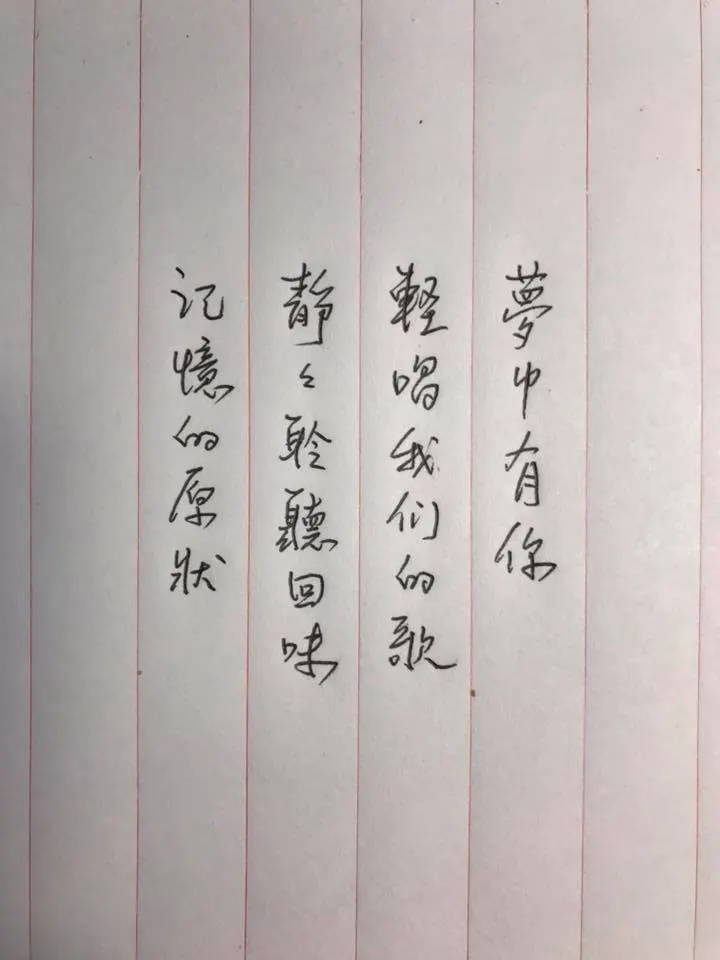 夢中有你
軽唱我们的歌
靜々聆聽回味
记憶的原狀